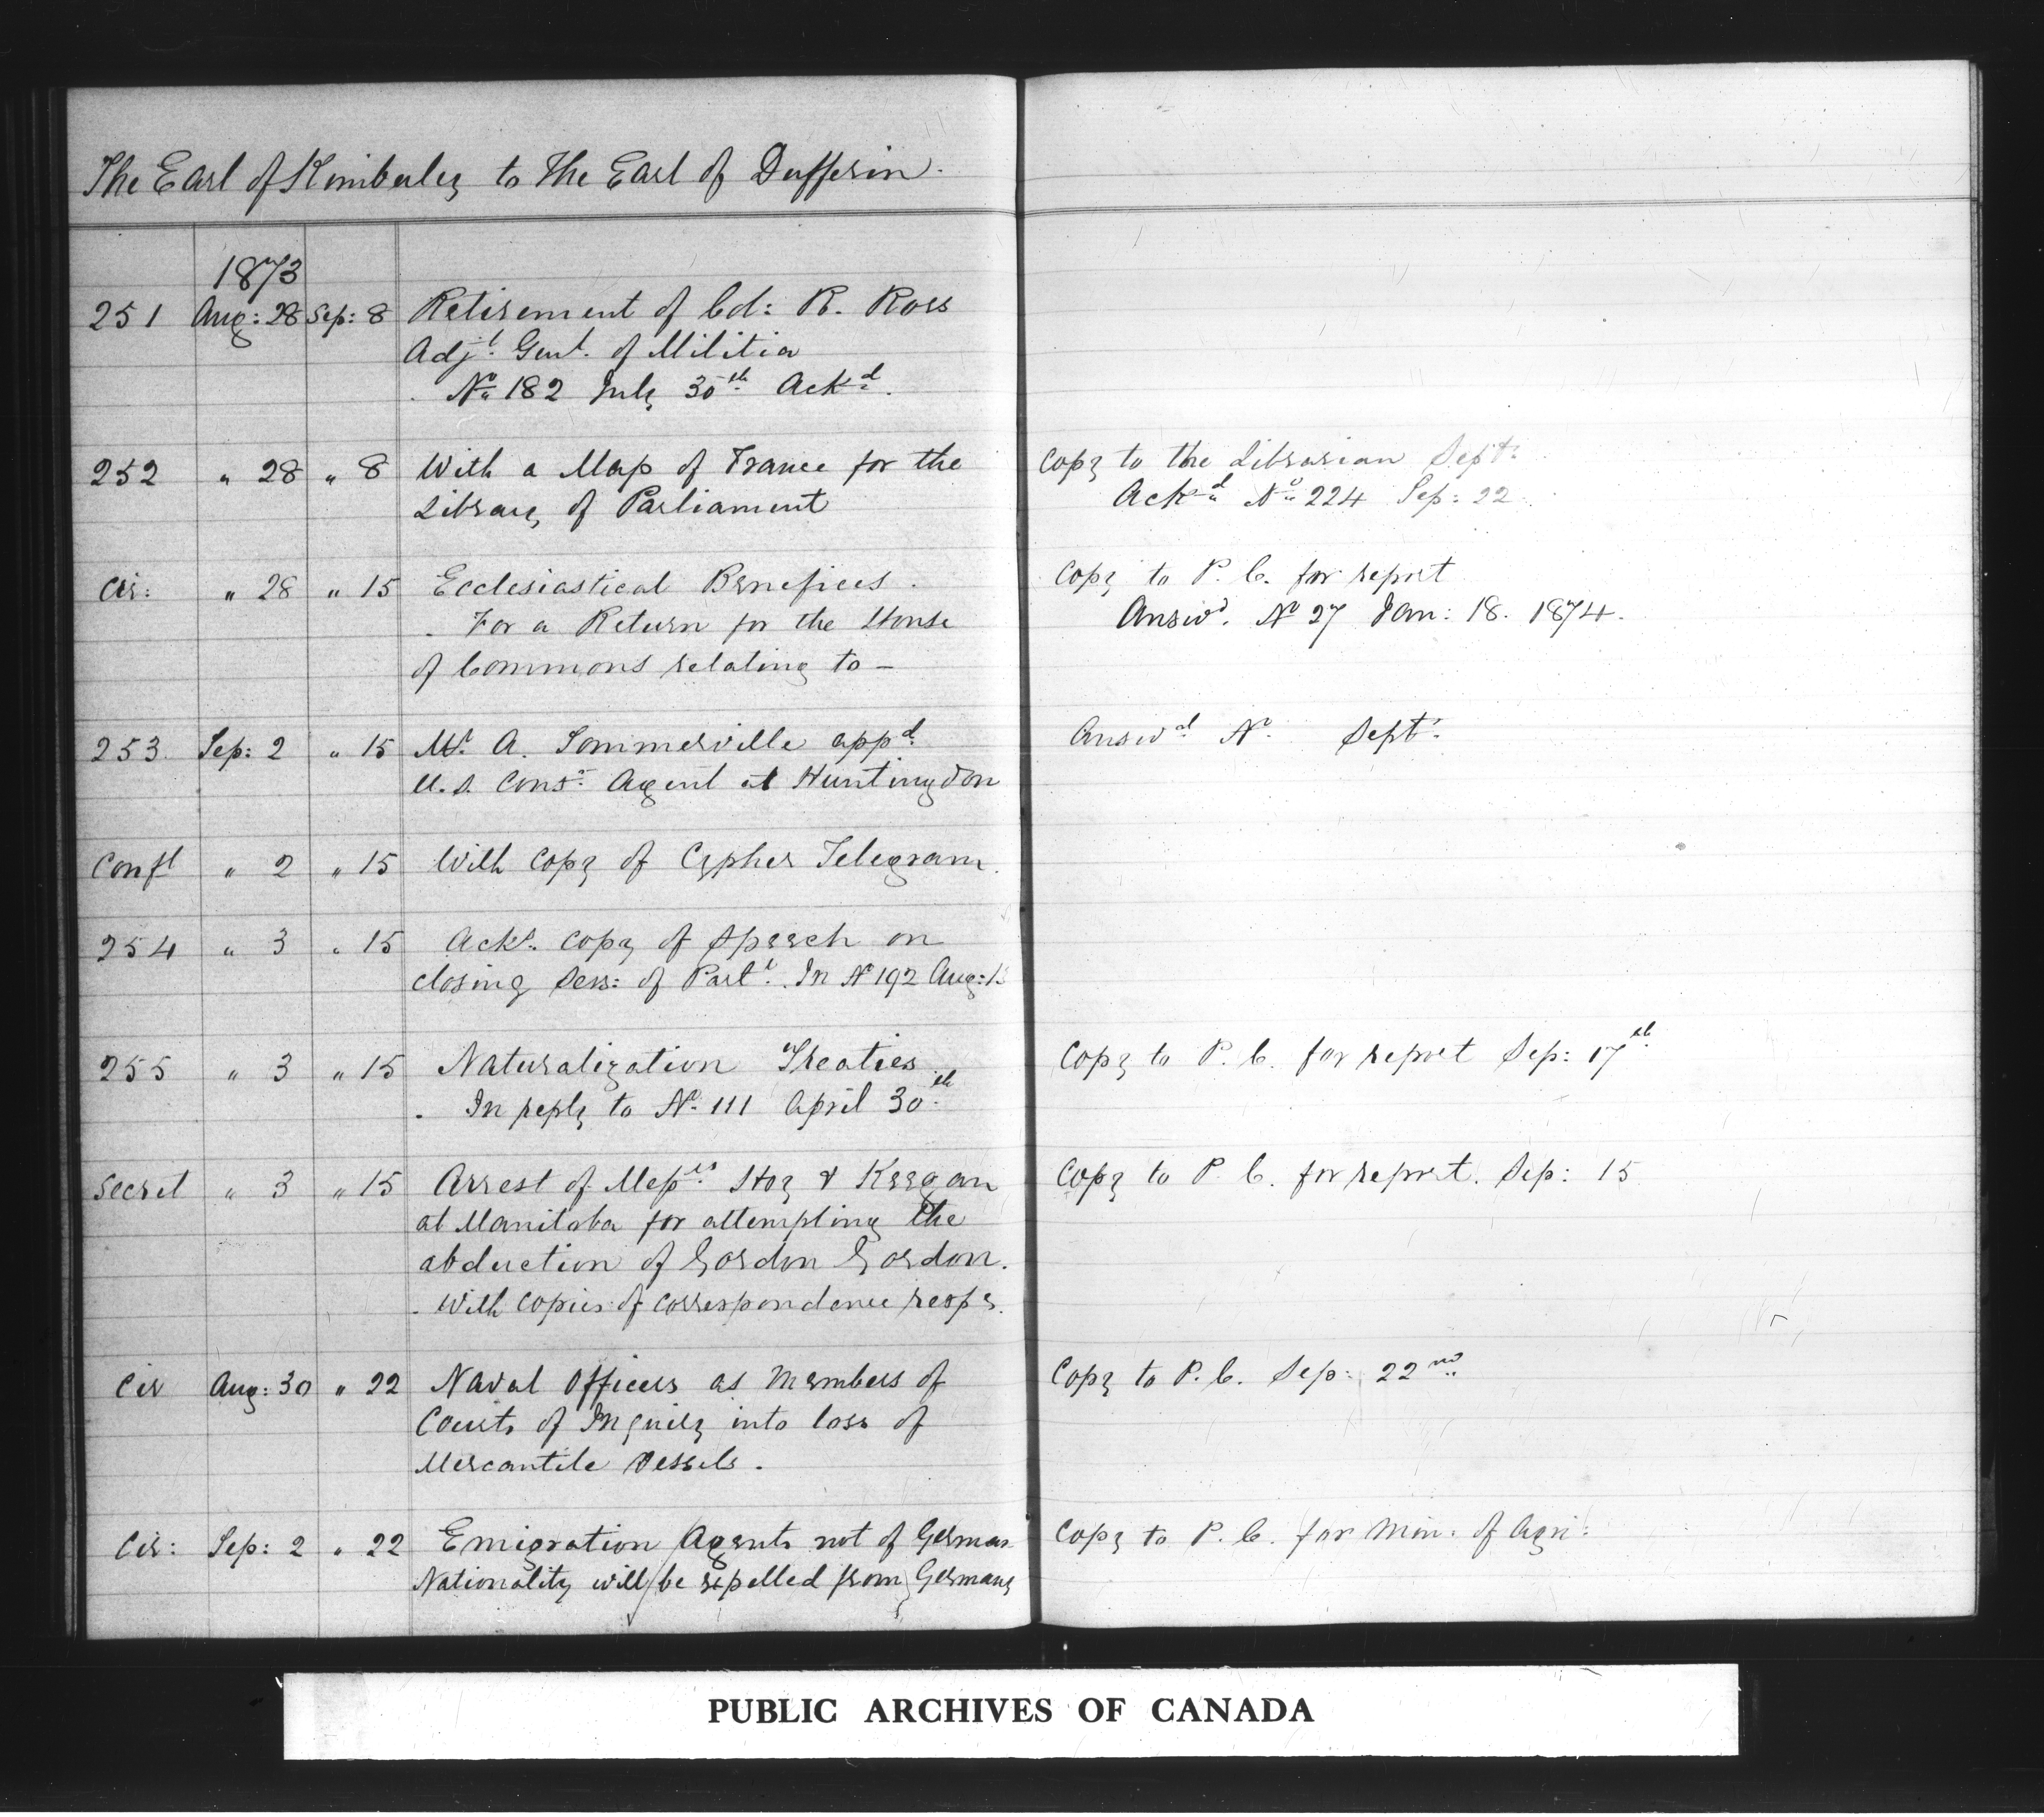 The Earl of Kimberley to The Earl of Dufferin.
1873
251 Aug: 28 Sep: 8 Retirement of Col: P. Ross
Adjt. Genl. of Militia
. No 182 July 30th Ackd.
252 " 28 " 8 With a Map of France for the Copy to the Librarian Sept:
Library of Parliament Ackd No 224 Sep: 22
Cir: " 28 " 15 Ecclesiastical Benefices. Copy to P. C. for report
. For a Return for the House Answd. No 27 Jan: 18. 1874.
of Commons relating to —
253 Sep: 2 " 15 Mr. A. Sommerville appd. Answd. No. Sept:
U.S. Consr. Agent at Huntingdon
Confl " 2 " 15 With copy of Cypher Telegram.
254 " 3 " 15 Acks. copy of speech on
closing Sess: of Parlt. In No 192 Aug:
255 " 3 " 15 Naturalization Treaties Copy to P. C. for report Sep: 17th
. In reply to No. 111 April 30th
Secret " 3 " 15 Arrest of Messrs Hoy & Keegan Copy to P. C. for report. Sep: 15
at Manitoba for attempting the
abduction of Gordon Gordon.
. With copies of correspondence respg.
Cir Aug: 30 " 22 Naval Officers as Members of Copy to P. C. Sep: 22nd
Courts of Inquiry into loss of
Mercantile Vessels.
Cir: Sep: 2 " 22 Emigration Agents not of German Copy to P. C. for Min. of Agri:
Nationality will be expelled from Germany
PUBLIC ARCHIVES OF CANADA